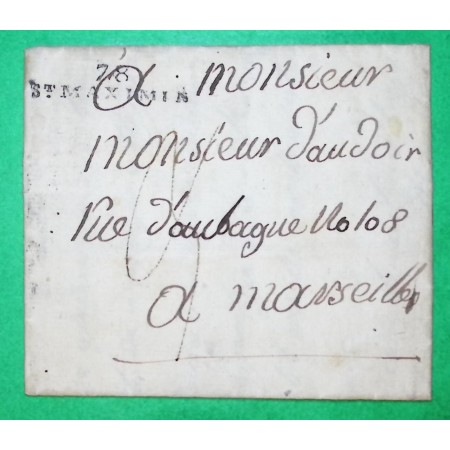 78
ST MAXIMIN
a monsieur
monsieur d'audoir
rue d'aubagne No 108
a marseille